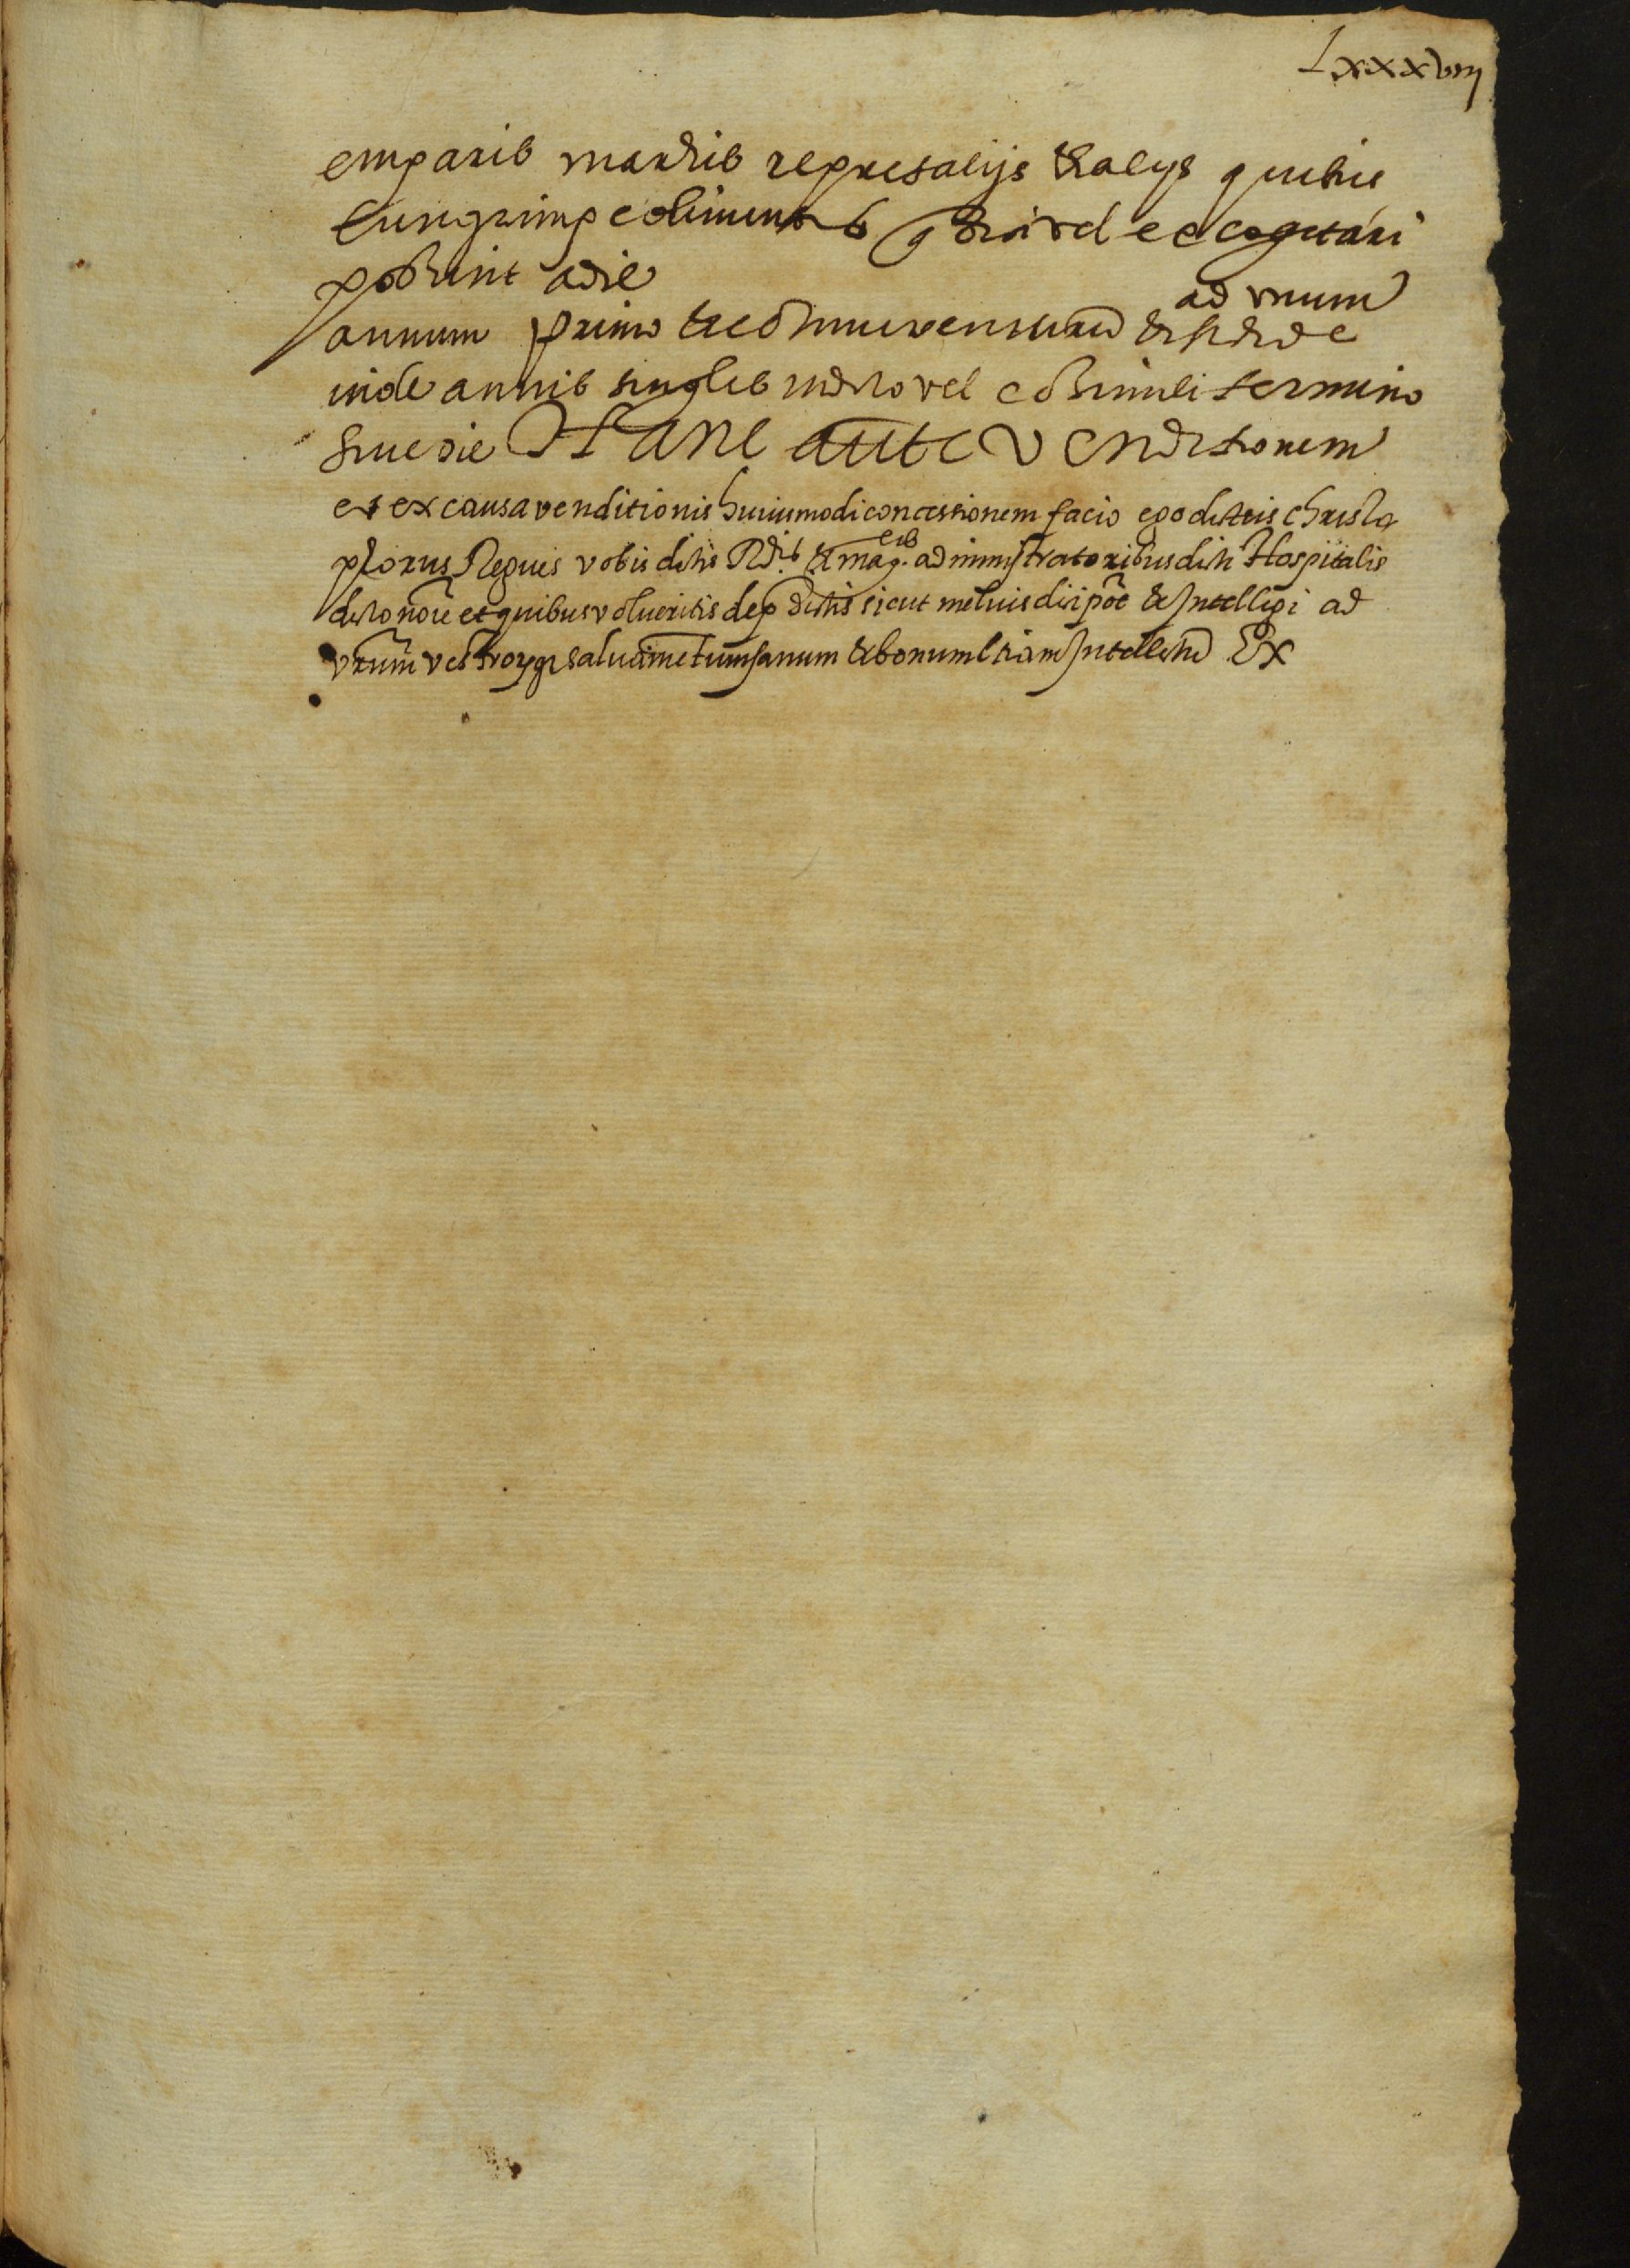 Lxxxviij
emparis marchis represalijs & alijs quibus
cunq impedimentis q dici vel excogitari
possint a die
ad vnum
annum primo et continue venturum & sic de
inde annis singlis in dicto vel consimili termino
siue die Hanc aute venditionem
et ex causa venditionis huiusmodi concessionem facio ego dictus christo
phorus Reguis vobis dictis Rdis & magcis administratoribus dicti Hospitalis
dicto noie et quibus volueritis de pdictis sicut melius dici pot & Intelligi ad
vrum vestrorq saluametum sanum & bonum etiam Intellectu Ex